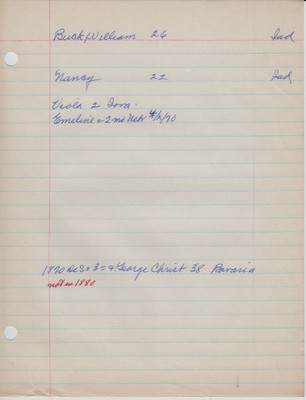 Buck, William 26 Ind
Nancy 22 Ind
Viola 2 Iowa
Emeline 2 mo Nebr
1870 George Christ 38 Bavaria
not in 1880